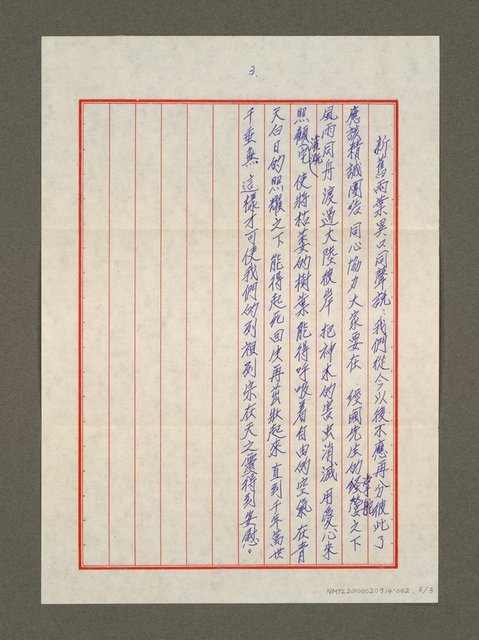 3.
新舊兩葉異口同聲說：我們從今以後不應再分彼此了
應該精誠團結 同心協力 大家要在 經國先生的領導之下
風雨同舟 渡過大陸彼岸 把神木的害虫消滅 用愛心來
照顧灌溉 使將枯萎的樹葉能得呼吸着自由的空氣 在青
天白日的照耀之下 能得起死回生再茁壯起來 直到千年萬世
千垂無 這樣才可使我們的列祖列宗在天之靈得到安慰。
NMTL20100020914-002, 3/3